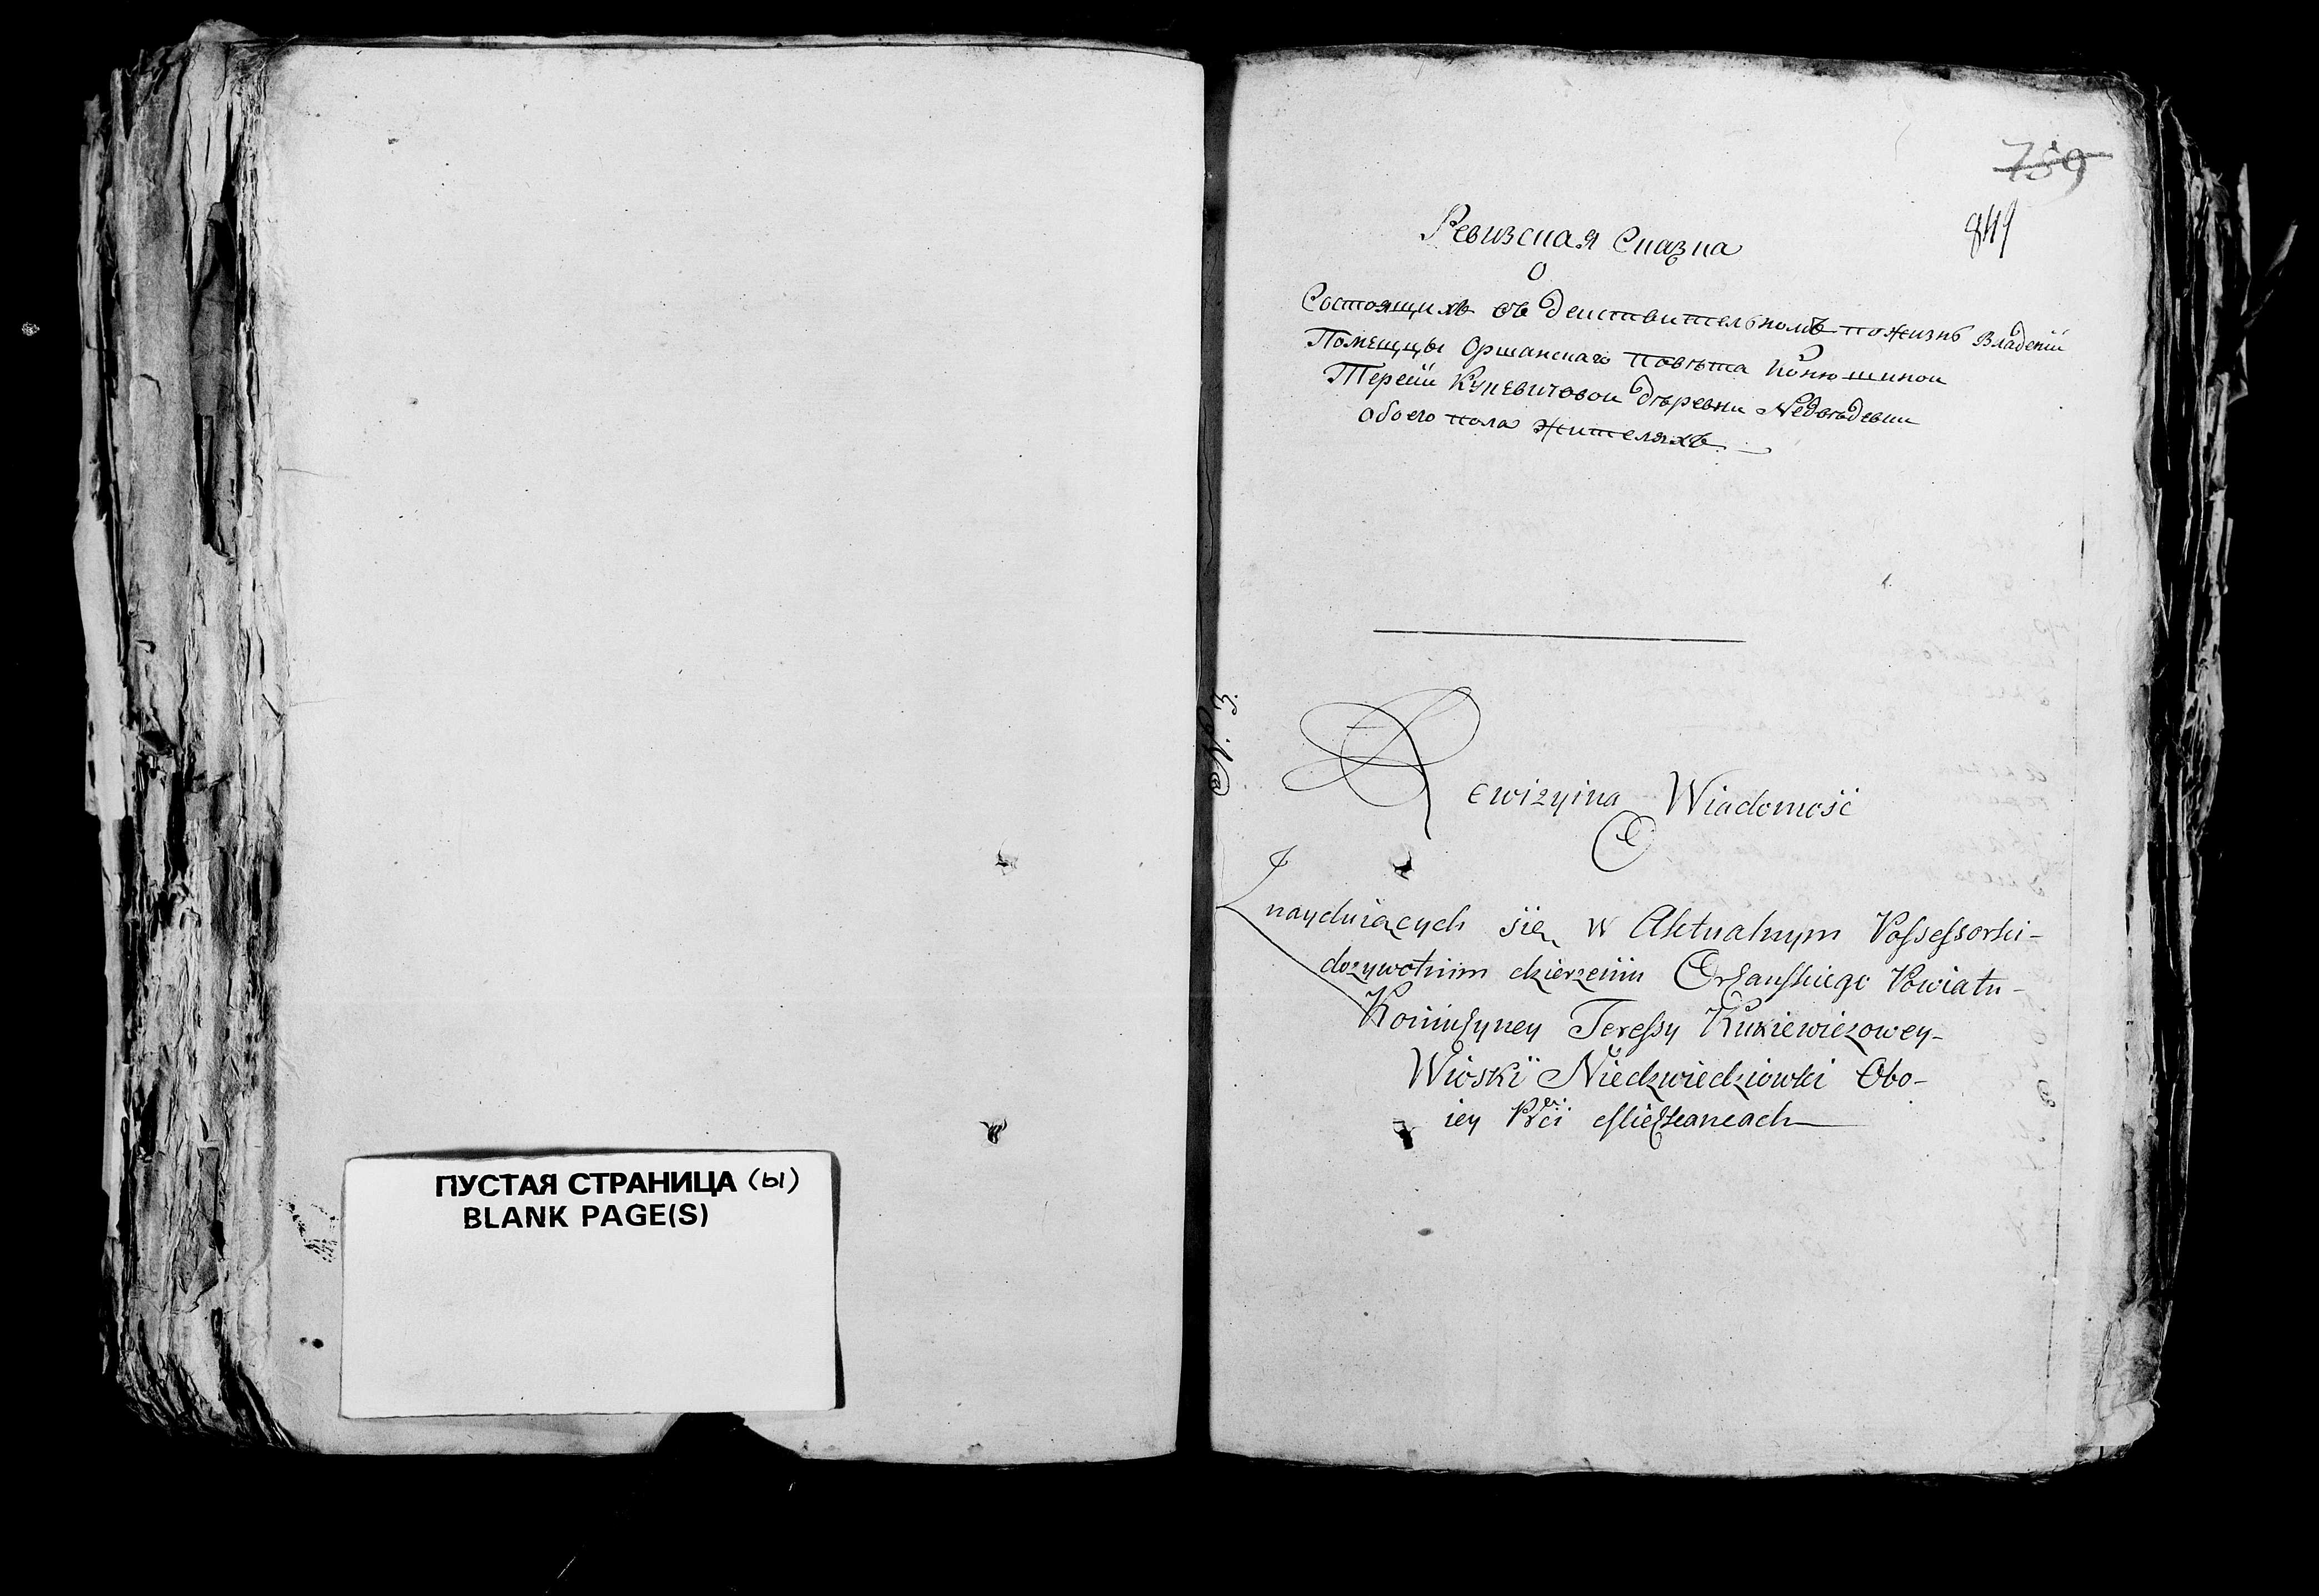 ПУСТАЯ СТРАНИЦА (ы)
BLANK PAGE(S)
759
849
Ревизская Сказка
О
Состоящихъ въ действительномъ пожизнь Владении
Помещцы Оршанскаго повѣта Конюшинои
Терейи Кукевичовои дѣревни Недвѣдевки
обоего пола жителяхъ.
N. 3.
Rewizyina Wiadomość
O
Znayduiących się w Aktualnym Possessorski-
dożywotnim dzierzeniu Orszanskiego Powiatu-
Koniuszyney Teressy Kukiewiczowey-
Wioski Niedzwiedziowki Obo-
iey Płci Mieszkancach